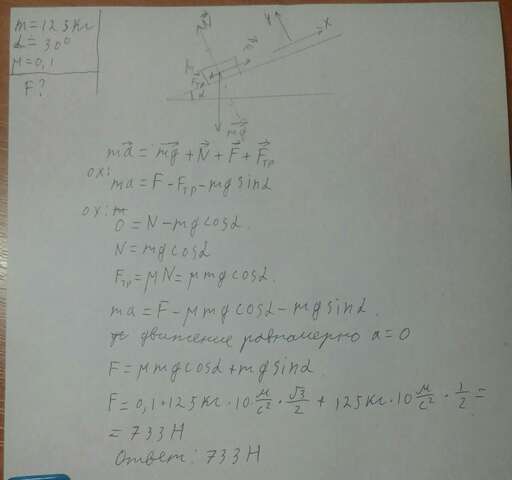 m=125кг
α=30°
μ=0,1
F?
y
x
N
F
Fтр
α
mg
ma = mg + N + F + Fтр
ох:
ma = F - Fтр - mg sinα
ох:
0 = N - mg cosα.
N = mg cosα
Fтр = μN = μmg cosα.
ma = F - μmg cosα - mg sinα.
движение равномерно a=0
F = μmg cosα + mg sinα.
F = 0,1 · 125 кг · 10 м/с² · √3/2 + 125 кг · 10 м/с² · 1/2 =
= 733 Н
Ответ: 733 Н